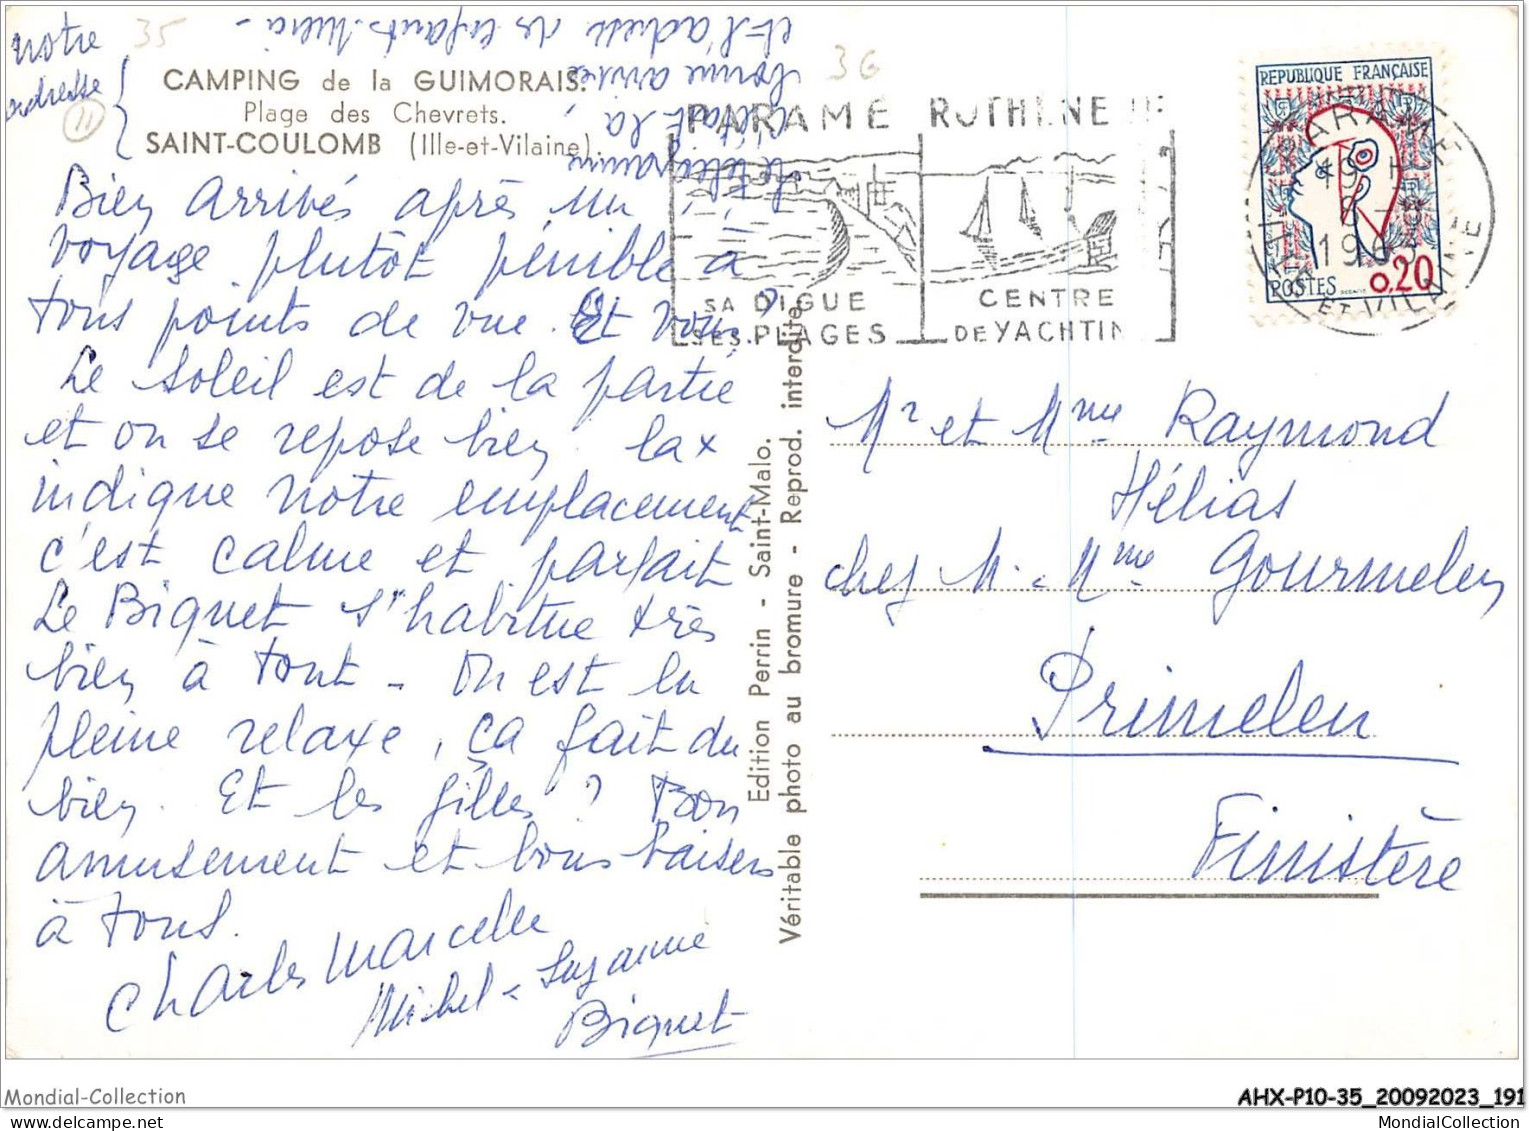 notre
adresse
35
36
11
CAMPING de la GUIMORAIS.
Plage des Chevrets.
SAINT-COULOMB (Ille-et-Vilaine).
Le télégramme
était là,
bonne arrivée
et l'adresse des enfants. Merci -
Bien arrivés après un
voyage plutôt pénible à
tous points de vue. Et vous ?
Le soleil est de la partie
et on se repose bien la x
indique notre emplacement
c'est calme et parfait
Le Biquet s'habitue très
bien à tout - On est en
pleine relaxe, ça fait du
bien. Et les filles ? Bon
amusement et bons baisers
à tous.
Charles Marcelle
Michel - Suzanne
Biquet
Edition Perrin - Saint-Malo.
Véritable photo au bromure - Reprod. interdite
PARAMÉ ROTHÉNEUF
SA DIGUE
SES PLAGES
CENTRE
DE YACHTIN
REPUBLIQUE FRANÇAISE
POSTES
0,20
PARAME
19 H
1963
ILLE ET VILAINE
Mr et Mme Raymond
Hélias
chez M. Mme Gourmelen
Primelen
Finistère
Mondial-Collection
AHX-P10-35_20092023_191
MondialCollection